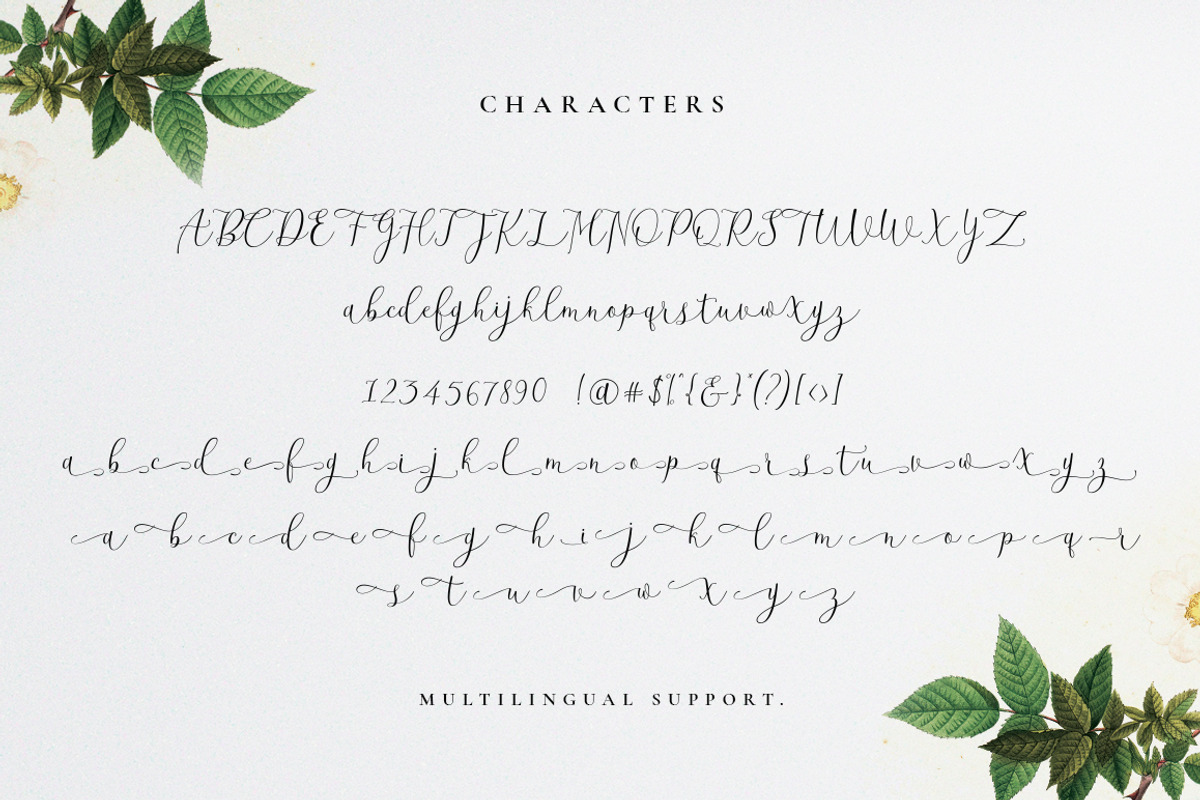 CHARACTERS
ABCDEFGHIJKLMNOPQRSTUVWXYZ
abcdefghijklmnopqrstuvwxyz
1234567890 !@#$%^{&}*(?)[<>]
a b c d e f g h i j k l m n o p q r s t u v w x y z
a b c d e f g h i j k l m n o p q r
s t u v w x y z
MULTILINGUAL SUPPORT.